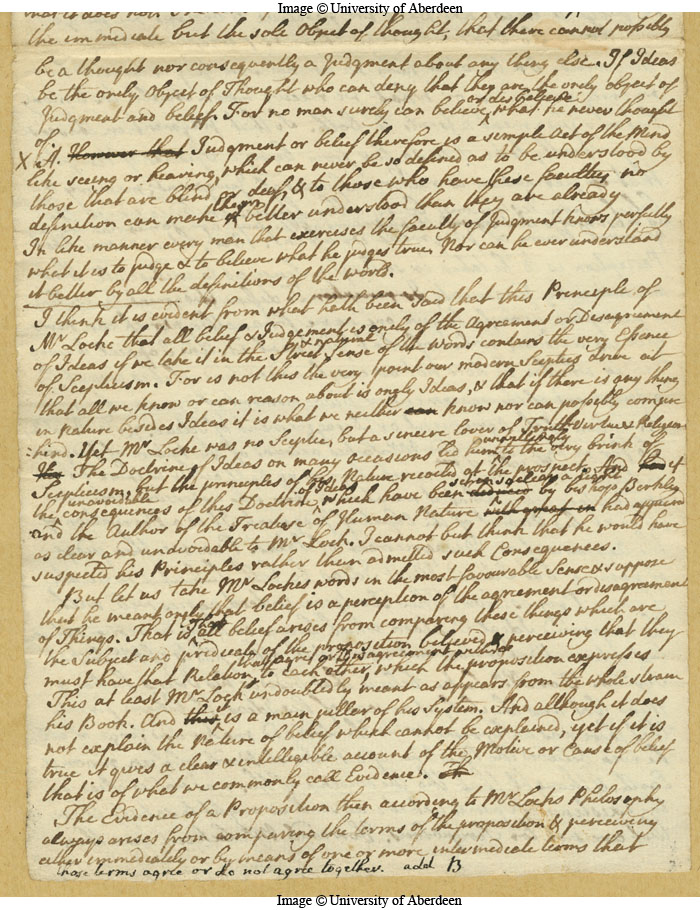 Image © University of Aberdeen
the immediate but the sole Object of thought, that there cannot possibly
be a thought nor consequently a Judgment about any thing else. If Ideas
be the only Object of Thought who can deny that they are the only object of
or disbelieve
Judgment and belief. For no man surely can believe what he never thought
of
X A. However that Judgment or belief therefore is a simple Act of the Mind
like seeing or hearing, which can never be so defined as to be understood by
those that are blind or deaf, & to those who have these faculties no
them
definition can make better understood than they are already
In like manner every man that exercises the faculty of Judgment knows perfectly
what it is to judge & to believe what he judges true. Nor can he ever understand
it better by all the definitions of the world.
I think it is evident from what hath been said that this Principle of
Mr Locke that all belief & Judgement is onely of the Agreement or Disagreement
& natural
of Ideas if we take it in the Strict Sense of the Words contains the very Essence
of Scepticism. For is not this the very point our modern Sceptics drive at
that all we know or can reason about is only Ideas, & that if there is any thing
in Nature besides Ideas it is what we neither can know nor can possibly compre
-hend. Yet Mr Locke was no Sceptic, but a sincere lover of Truth Virtue & Religion
unwittingly
The Doctrine of Ideas on many occasions led him to the very brink of
Scepticism, but the principles of his Nature recoiled at the prospect. And had
of Ideas seen so clearly
unavoidable
the consequences of this Doctrine, which have been deduced by bishop Berkley
and the Author of the Treatise of Human Nature with great in had appeared
as clear and unavoidable to Mr Lock. I cannot but think that he would have
suspected his Principles rather than admitted such Consequences.
But let us take Mr Lockes words in the most favourable Sense & suppose
that he meant only that belief is a perception of the agreement or disagreement
of Things. That is that all belief arises from comparing these things which are
the Subject and predicate of the proposition believed & perceiving that they
that agreement or Disagreement
must have that Relation to each other, which the proposition expresses
This at least Mr Lock undoubtedly meant as appears from the whole strain
his Book. And this is a main piller of his System. And although it does
not explain the Nature of belief which cannot be explained, yet if it is
true it gives a clear & intelligible account of the Motive or Cause of belief
that is of what we commonly call Evidence. Th
The Evidence of a Proposition then according to Mr Locks Philosophy
always arises from comparing the terms of the proposition & perceiving
either immediately or by means of one or more intermediate terms that
those terms agree or do not agree together. add B
Image © University of Aberdeen